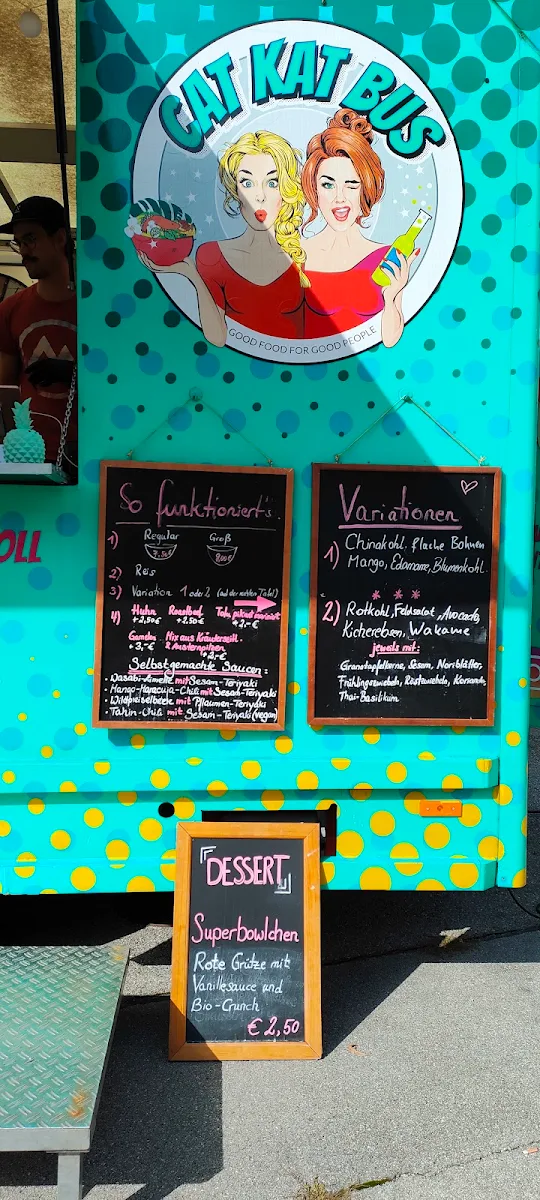 CAT KAT BUS
GOOD FOOD FOR GOOD PEOPLE
OLL
So funktioniert's:
1) Regular Groß
7,50€ 9,00€
2) Reis
3) Variation 1 oder 2 (auf der rechten Tafel)
4) Huhn Roastbeef Tofu, pikant mariniert
+2,50€ +2,50€ +2,-€
Garnelen Mix aus Kräuterseitl.
+3,-€ & Austernpilzen
+2,-€
Selbstgemachte Saucen:
• Wasabi-Limette mit Sesam-Teriyaki
• Mango-Maracuja-Chili mit Sesam-Teriyaki
• Wildpreiselbeere mit Pflaumen-Teriyaki
• Tahin-Chili mit Sesam-Teriyaki (vegan)
Variationen
1) Chinakohl, flache Bohnen
Mango, Edamame, Blumenkohl
2) Rotkohl, Feldsalat, Avocado,
Kichererbsen, Wakame
jeweils mit:
Granatapfelkerne, Sesam, Noriblätter,
Frühlingszwiebeln, Röstzwiebeln, Koriander,
Thai-Basilikum
DESSERT
Superbowlchen
Rote Grütze mit
Vanillesauce und
Bio-Crunch
€ 2,50